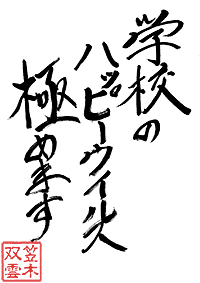 学校の
ハッピーウイルス
極めます
笠木
双雲